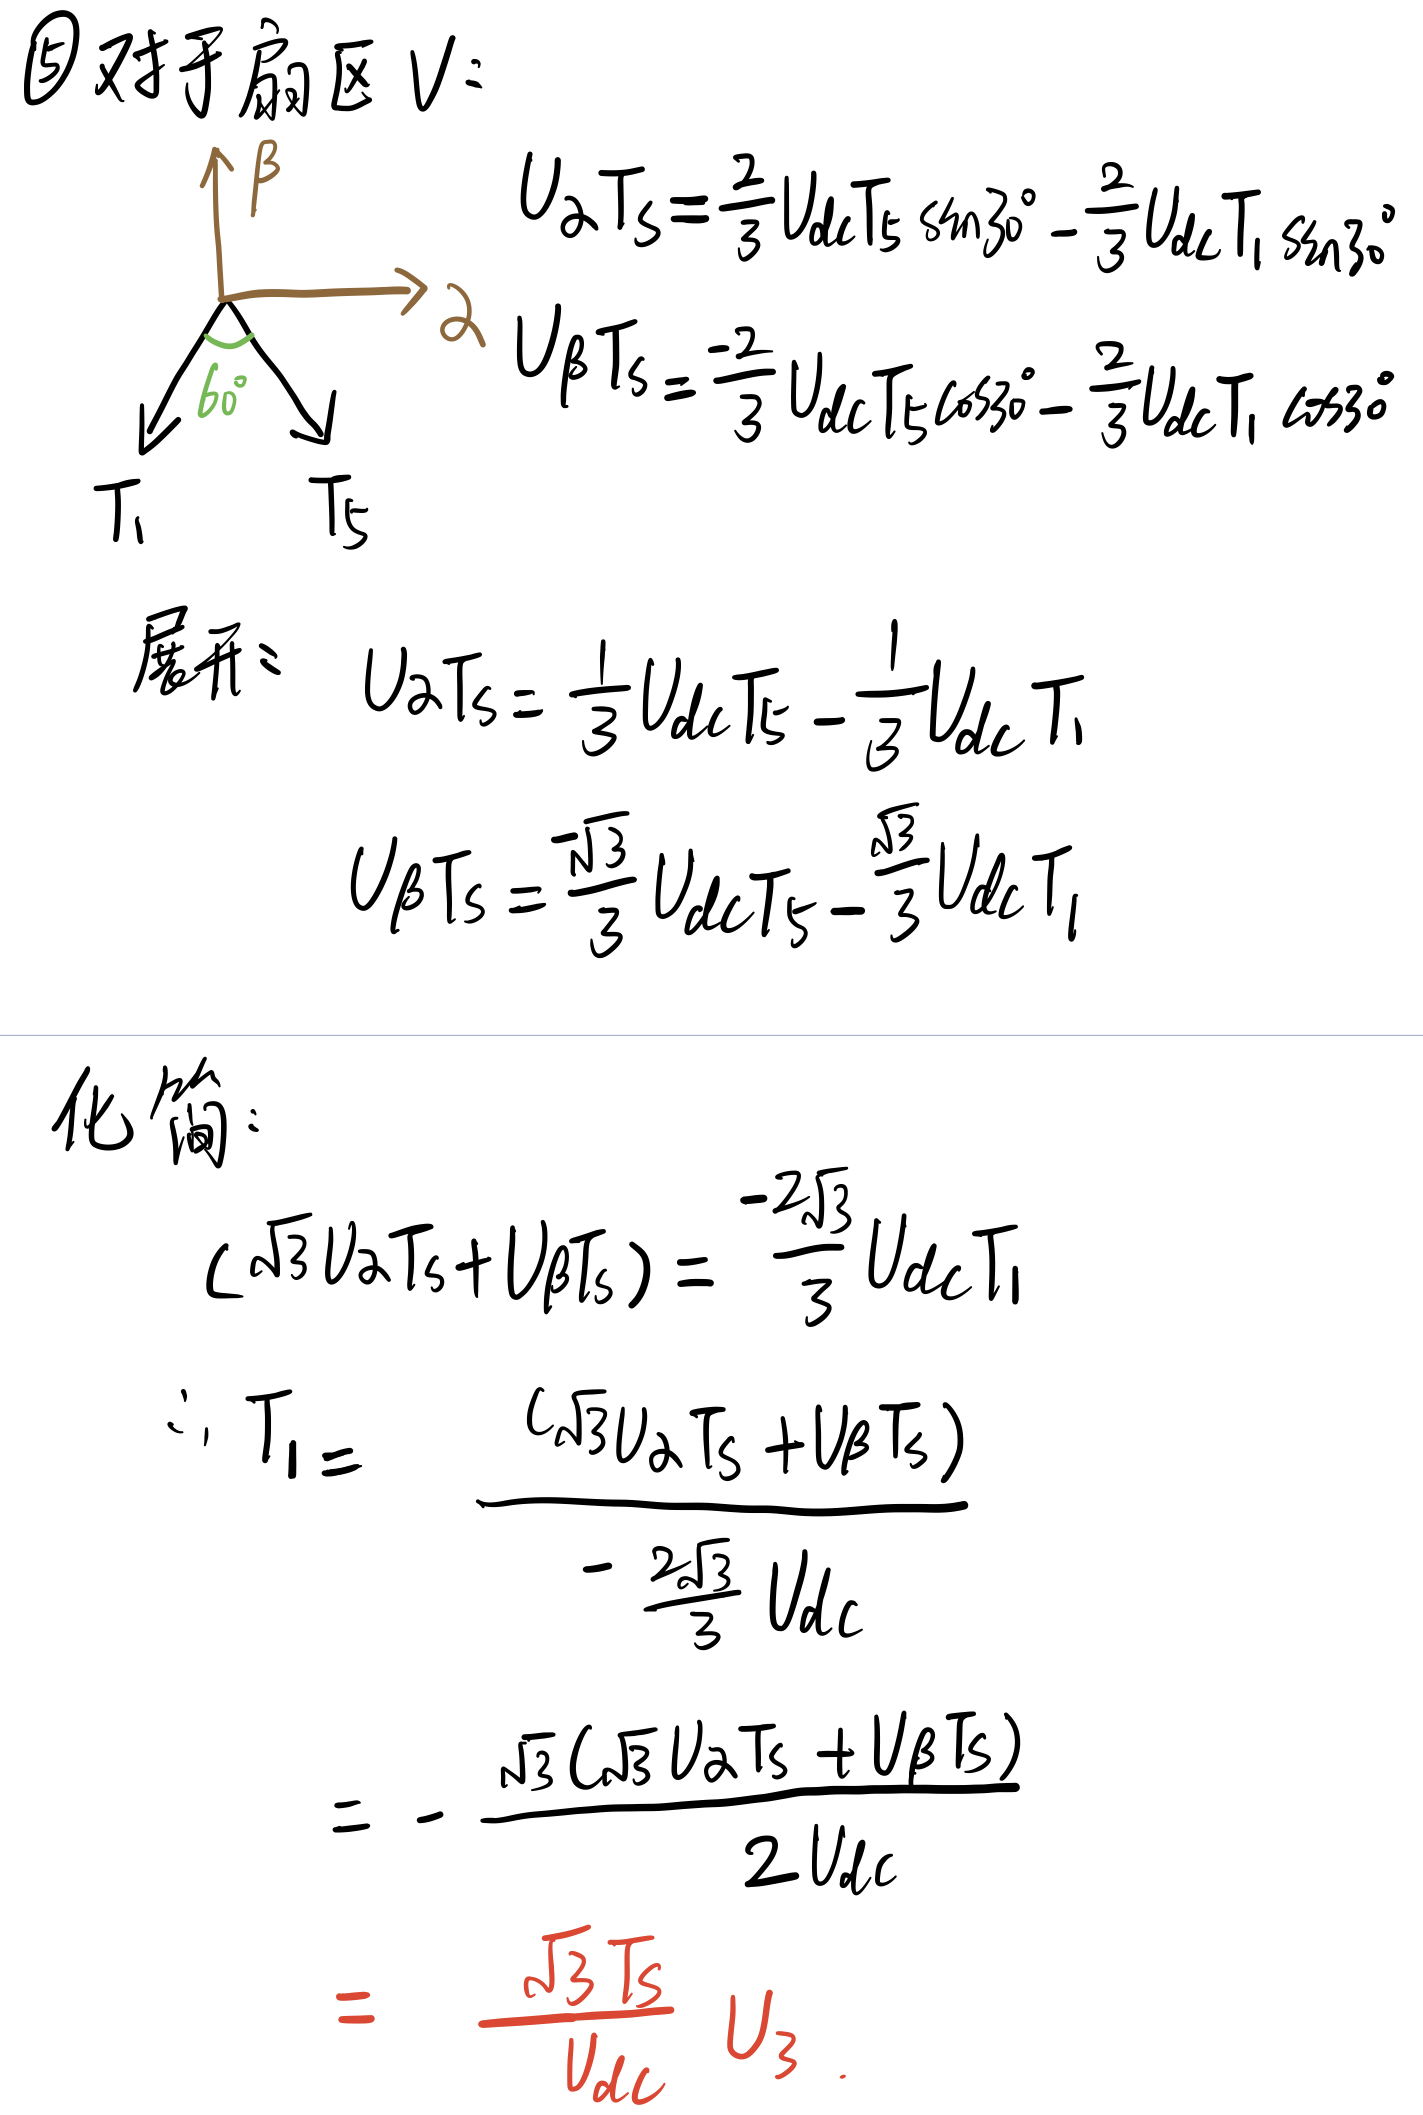 ⑤对于扇区 V:
β
α
60°
T₁ T₅
UαTs = 2/3 UdcT₅ sin30° - 2/3 UdcT₁ sin30°
UβTs = -2/3 UdcT₅ cos30° - 2/3 UdcT₁ cos30°
展开: UαTs = 1/3 UdcT₅ - 1/3 UdcT₁
UβTs = -√3/3 UdcT₅ - √3/3 UdcT₁
化简:
(√3UαTs + UβTs) = -2√3/3 UdcT₁
∴ T₁ = (√3UαTs + UβTs) / -2√3/3 Udc
= - √3(√3UαTs + UβTs) / 2Udc
= √3Ts/Udc U₃.